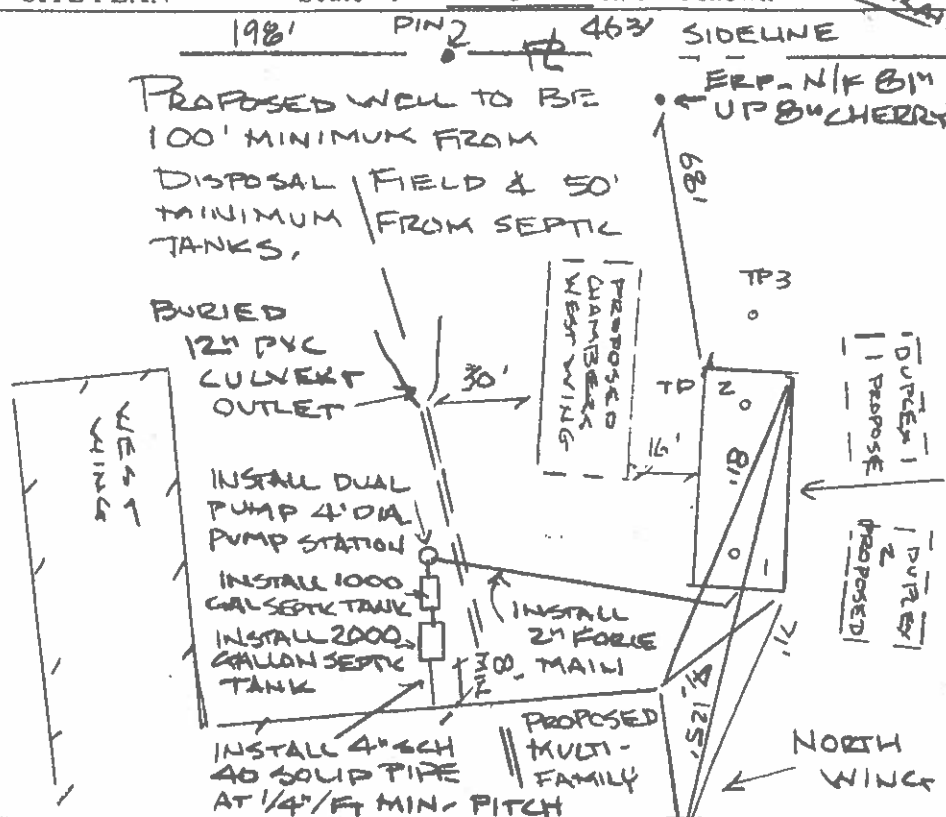 198' PIN 2 PL 463' SIDELINE
PROPOSED WELL TO BE
100' MINIMUM FROM
DISPOSAL FIELD & 50'
MINIMUM FROM SEPTIC
TANKS.
ERP- N/F 81"
UP 8" CHERRY
68'
TP3
BURIED
12" PVC
CULVERT
OUTLET
30'
PROPOSED
CHAMBERS
WEST WING
16'
TP 2
81'
1
DUPLEX 1
PROPOSE
DUPLEX
2
PROPOSED
WEST
WING
INSTALL DUAL
PUMP 4' DIA
PUMP STATION
INSTALL 1000
GAL SEPTIC TANK
INSTALL 2000
GALLON SEPTIC
TANK
8'
MIN
INSTALL
2" FORCE
MAIN
71'
41'
125'
INSTALL 4" SCH
40 SOLID PIPE
AT 1/4"/FT MIN. PITCH
PROPOSED
MULTI-
FAMILY
NORTH
WING